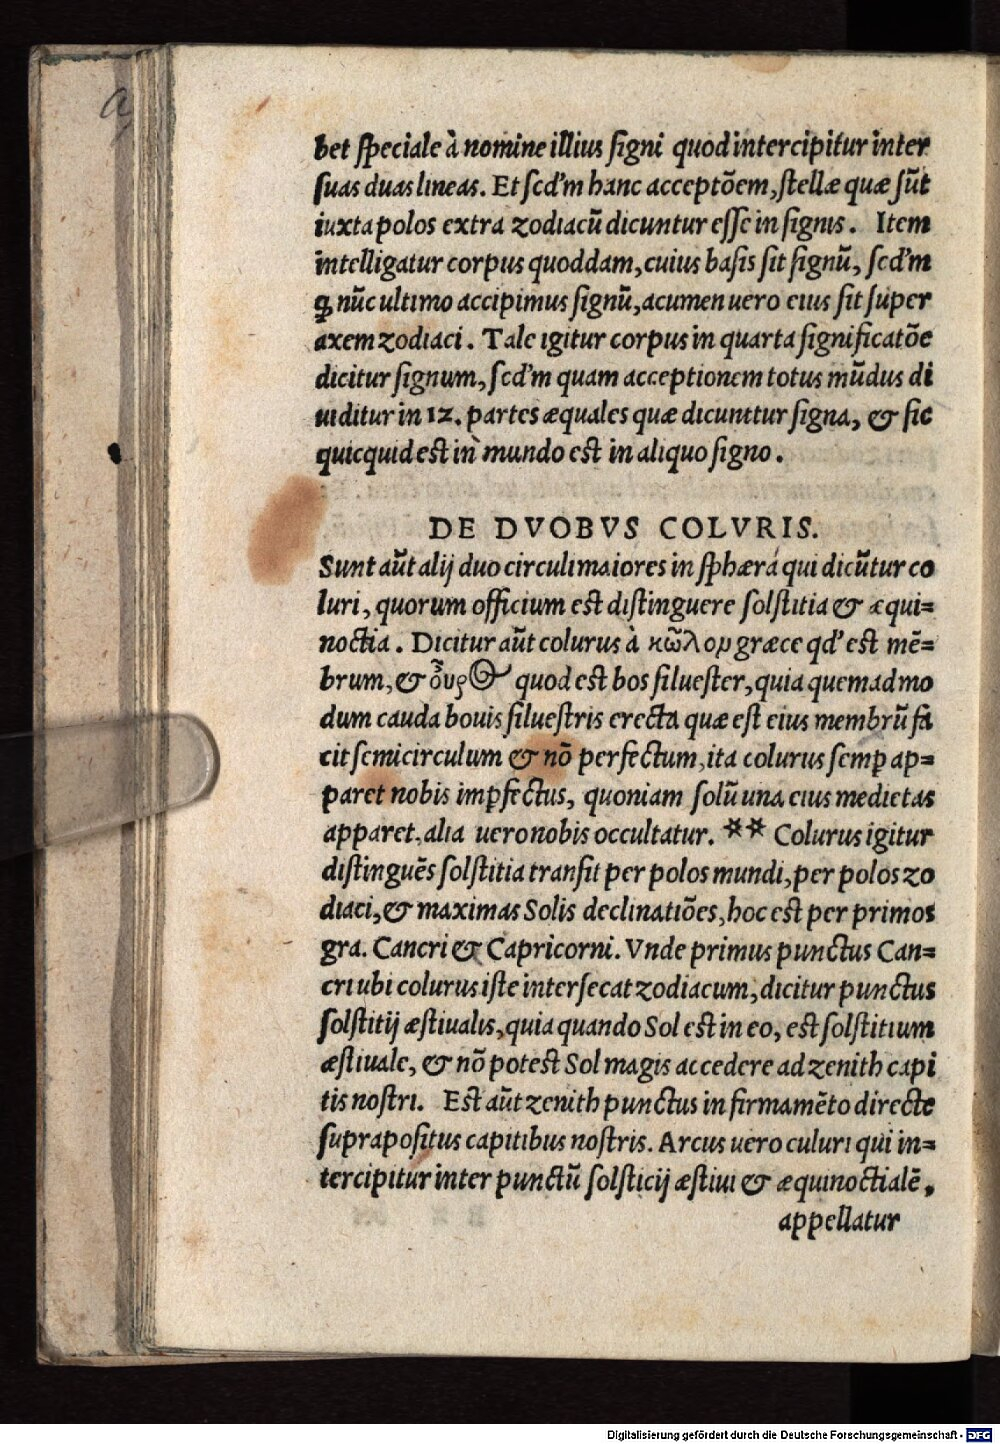 a
bet ſpeciale à nomine illius ſigni quod intercipitur inter
ſuas duas lineas. Et ſcd'm hanc acceptõem, ſtellæ quæ ſũt
iuxta polos extra zodiacũ dicuntur eſſe in ſignis. Item
intelligatur corpus quoddam, cuius baſis ſit ſignũ, ſcd'm
ꝙ nũc ultimo accipimus ſignũ, acumen uero eius ſit ſuper
axem zodiaci. Tale igitur corpus in quarta ſignificatõe
dicitur ſignum, ſcd'm quam acceptionem totus mũdus di
uiditur in 12. partes æquales quæ dicuntur ſigna, & ſic
quicquid eſt in mundo eſt in aliquo ſigno.
DE DVOBVS COLVRIS.
Sunt aũt alij duo circuli maiores in ſphæra qui dicũtur co
luri, quorum officium eſt diſtinguere ſolſtitia & æqui=
noctia. Dicitur aũt colurus à κῶλον græce qd' eſt mẽ=
brum, & οὖρος quod eſt bos ſilueſter, quia quemadmo
dum cauda bouis ſilueſtris erecta quæ eſt eius membrũ fa
cit ſemicirculum & nõ perfectum, ita colurus ſemꝑ ap=
paret nobis imꝑfectus, quoniam ſolũ una eius medietas
apparet, alia uero nobis occultatur. ** Colurus igitur
diſtinguẽs ſolſtitia tranſit per polos mundi, per polos zo
diaci, & maximas Solis declinatiões, hoc eſt per primos
gra. Cancri & Capricorni. Vnde primus punctus Can=
cri ubi colurus iſte interſecat zodiacum, dicitur punctus
ſolſtitij æſtiualis, quia quando Sol eſt in eo, eſt ſolſtitium
æſtiuale, & nõ poteſt Sol magis accedere ad zenith capi
tis noſtri. Eſt aũt zenith punctus in firmamẽto directe
ſuprapoſitus capitibus noſtris. Arcus uero culuri qui in=
tercipitur inter punctũ ſolſticij æſtiui & æquinoctialẽ,
appellatur
Digitalisierung gefördert durch die Deutsche Forschungsgemeinschaft - DFG